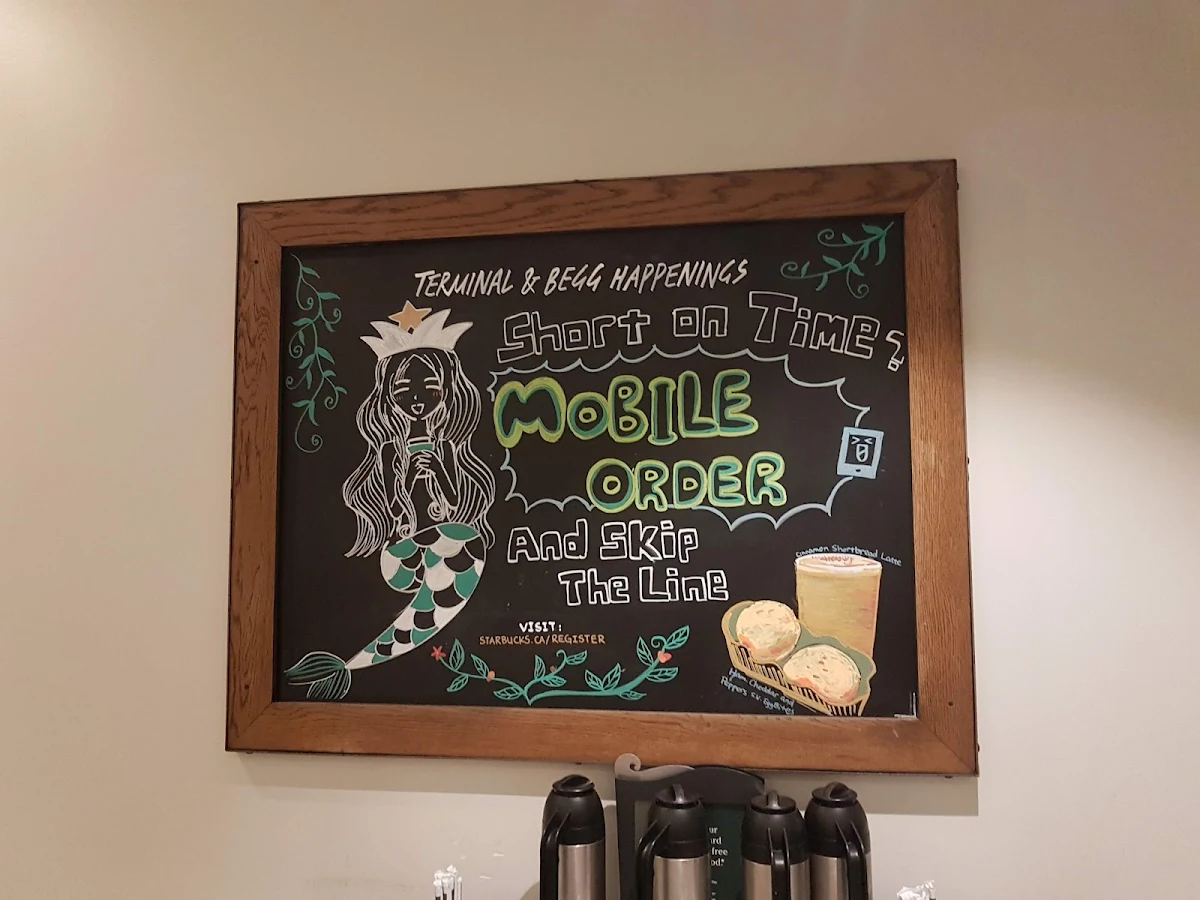 TERMINAL & BEGG HAPPENINGS
Short on Time?
MOBILE
ORDER
And Skip
The Line
VISIT:
STARBUCKS.CA/REGISTER
Cinnamon Shortbread Latte
Ham Cheddar and
Peppers s.v. Egg Bites
ur
rd
free
od.*